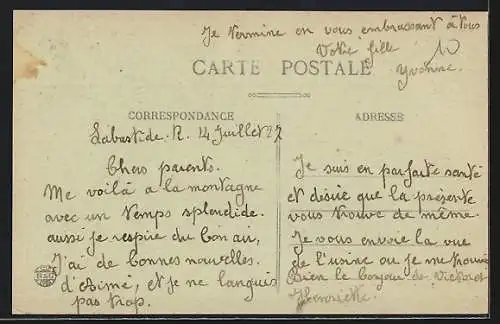 Je termine en vous embrassant à tous
Votre fille
Yvonne.
10
CARTE POSTALE
CORRESPONDANCE
ADRESSE
Labastide-R. 14 Juillet 27
Chers parents.
Me voilà a la montagne
avec un temps splendide.
aussi je respire du bon air,
J'ai de bonnes nouvelles.
d'Aimé, et je ne languis
pas trop.
Je suis en parfaite santé
et désire que la présente
vous trouve de même.
Je vous envoie la vue
de l'usine ou je me trouve
Bien le bonjour de Victor et
Henriette.